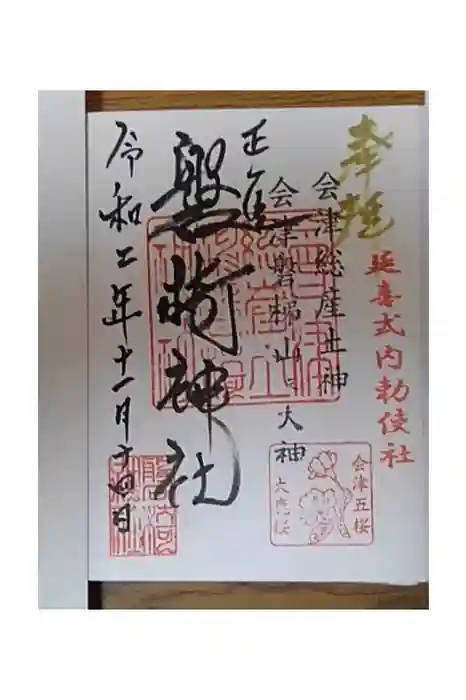 奉拝
延喜式内勅使社
会津総産土神
会津磐梯山の大神
正一位
磐椅神社
令和二年十一月十四日
会津五桜
大鹿桜